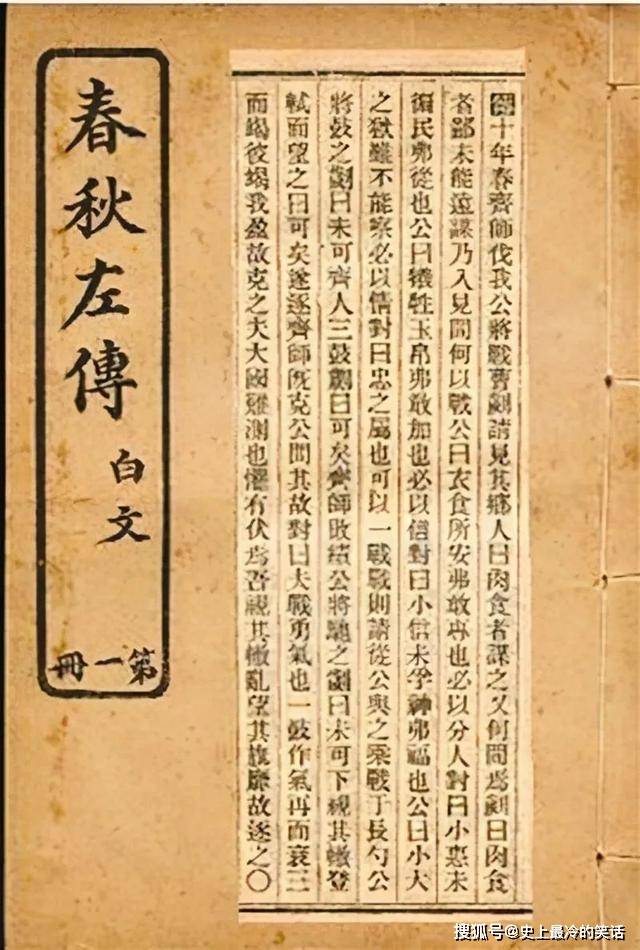 春秋左傳
白文
第一冊
傳十年春齊師伐我公將戰曹劌請見其鄉人曰肉食者謀之又何間焉劌曰肉食
者鄙未能遠謀乃入見問何以戰公曰衣食所安弗敢專也必以分人對曰小惠未
徧民弗從也公曰犧牲玉帛弗敢加也必以信對曰小信未孚神弗福也公曰小大
之獄雖不能察必以情對曰忠之屬也可以一戰戰則請從公與之乘戰于長勺公
將鼓之劌曰未可齊人三鼓劌曰可矣齊師敗績公將馳之劌曰未可下視其轍登
軾而望之曰可矣遂逐齊師既克公問其故對曰夫戰勇氣也一鼓作氣再而衰三
而竭彼竭我盈故克之夫大國難測也懼有伏焉吾視其轍亂望其旗靡故逐之〇
搜狐号@史上最冷的笑话